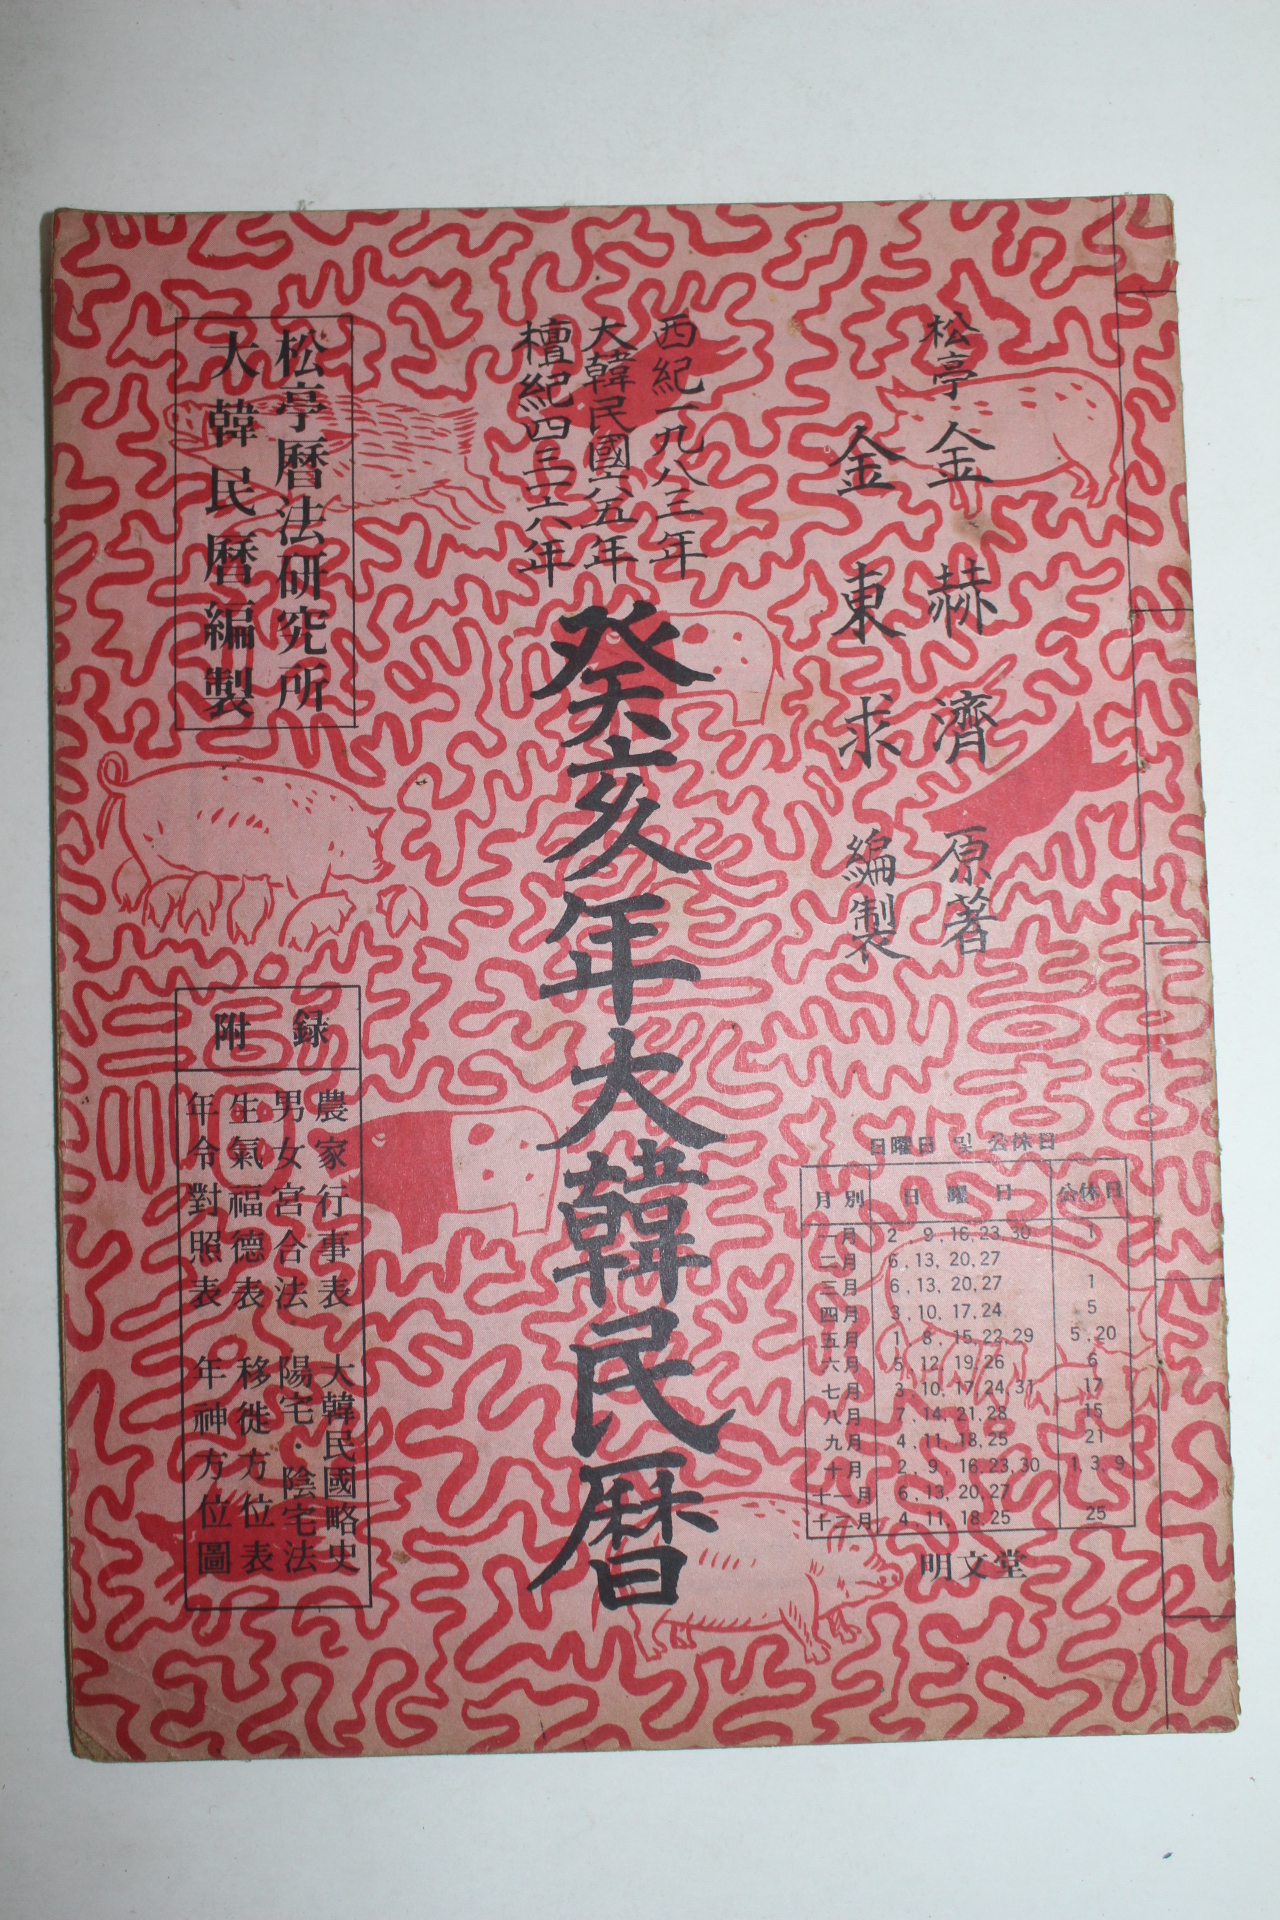 松亭 金赫濟 原著
金東求 編製
西紀一九八三年
大韓民國六五年
檀紀四三一六年
癸亥年大韓民曆
松亭曆法研究所
大韓民曆編製
附錄
農家行事表 大韓民國略史
男女宮合法 陽宅·陰宅法
生氣福德表 移徙方位表
年令對照表 年神方位圖
日曜日 및 公休日
月別 日曜日 公休日
一月 2, 9, 16, 23, 30 1
二月 6, 13, 20, 27
三月 6, 13, 20, 27 1
四月 3, 10, 17, 24 5
五月 1, 8, 15, 22, 29 5, 20
六月 5, 12, 19, 26 6
七月 3, 10, 17, 24, 31 17
八月 7, 14, 21, 28 15
九月 4, 11, 18, 25 21
十月 2, 9, 16, 23, 30 1, 3, 9
十一月 6, 13, 20, 27
十二月 4, 11, 18, 25 25
明文堂